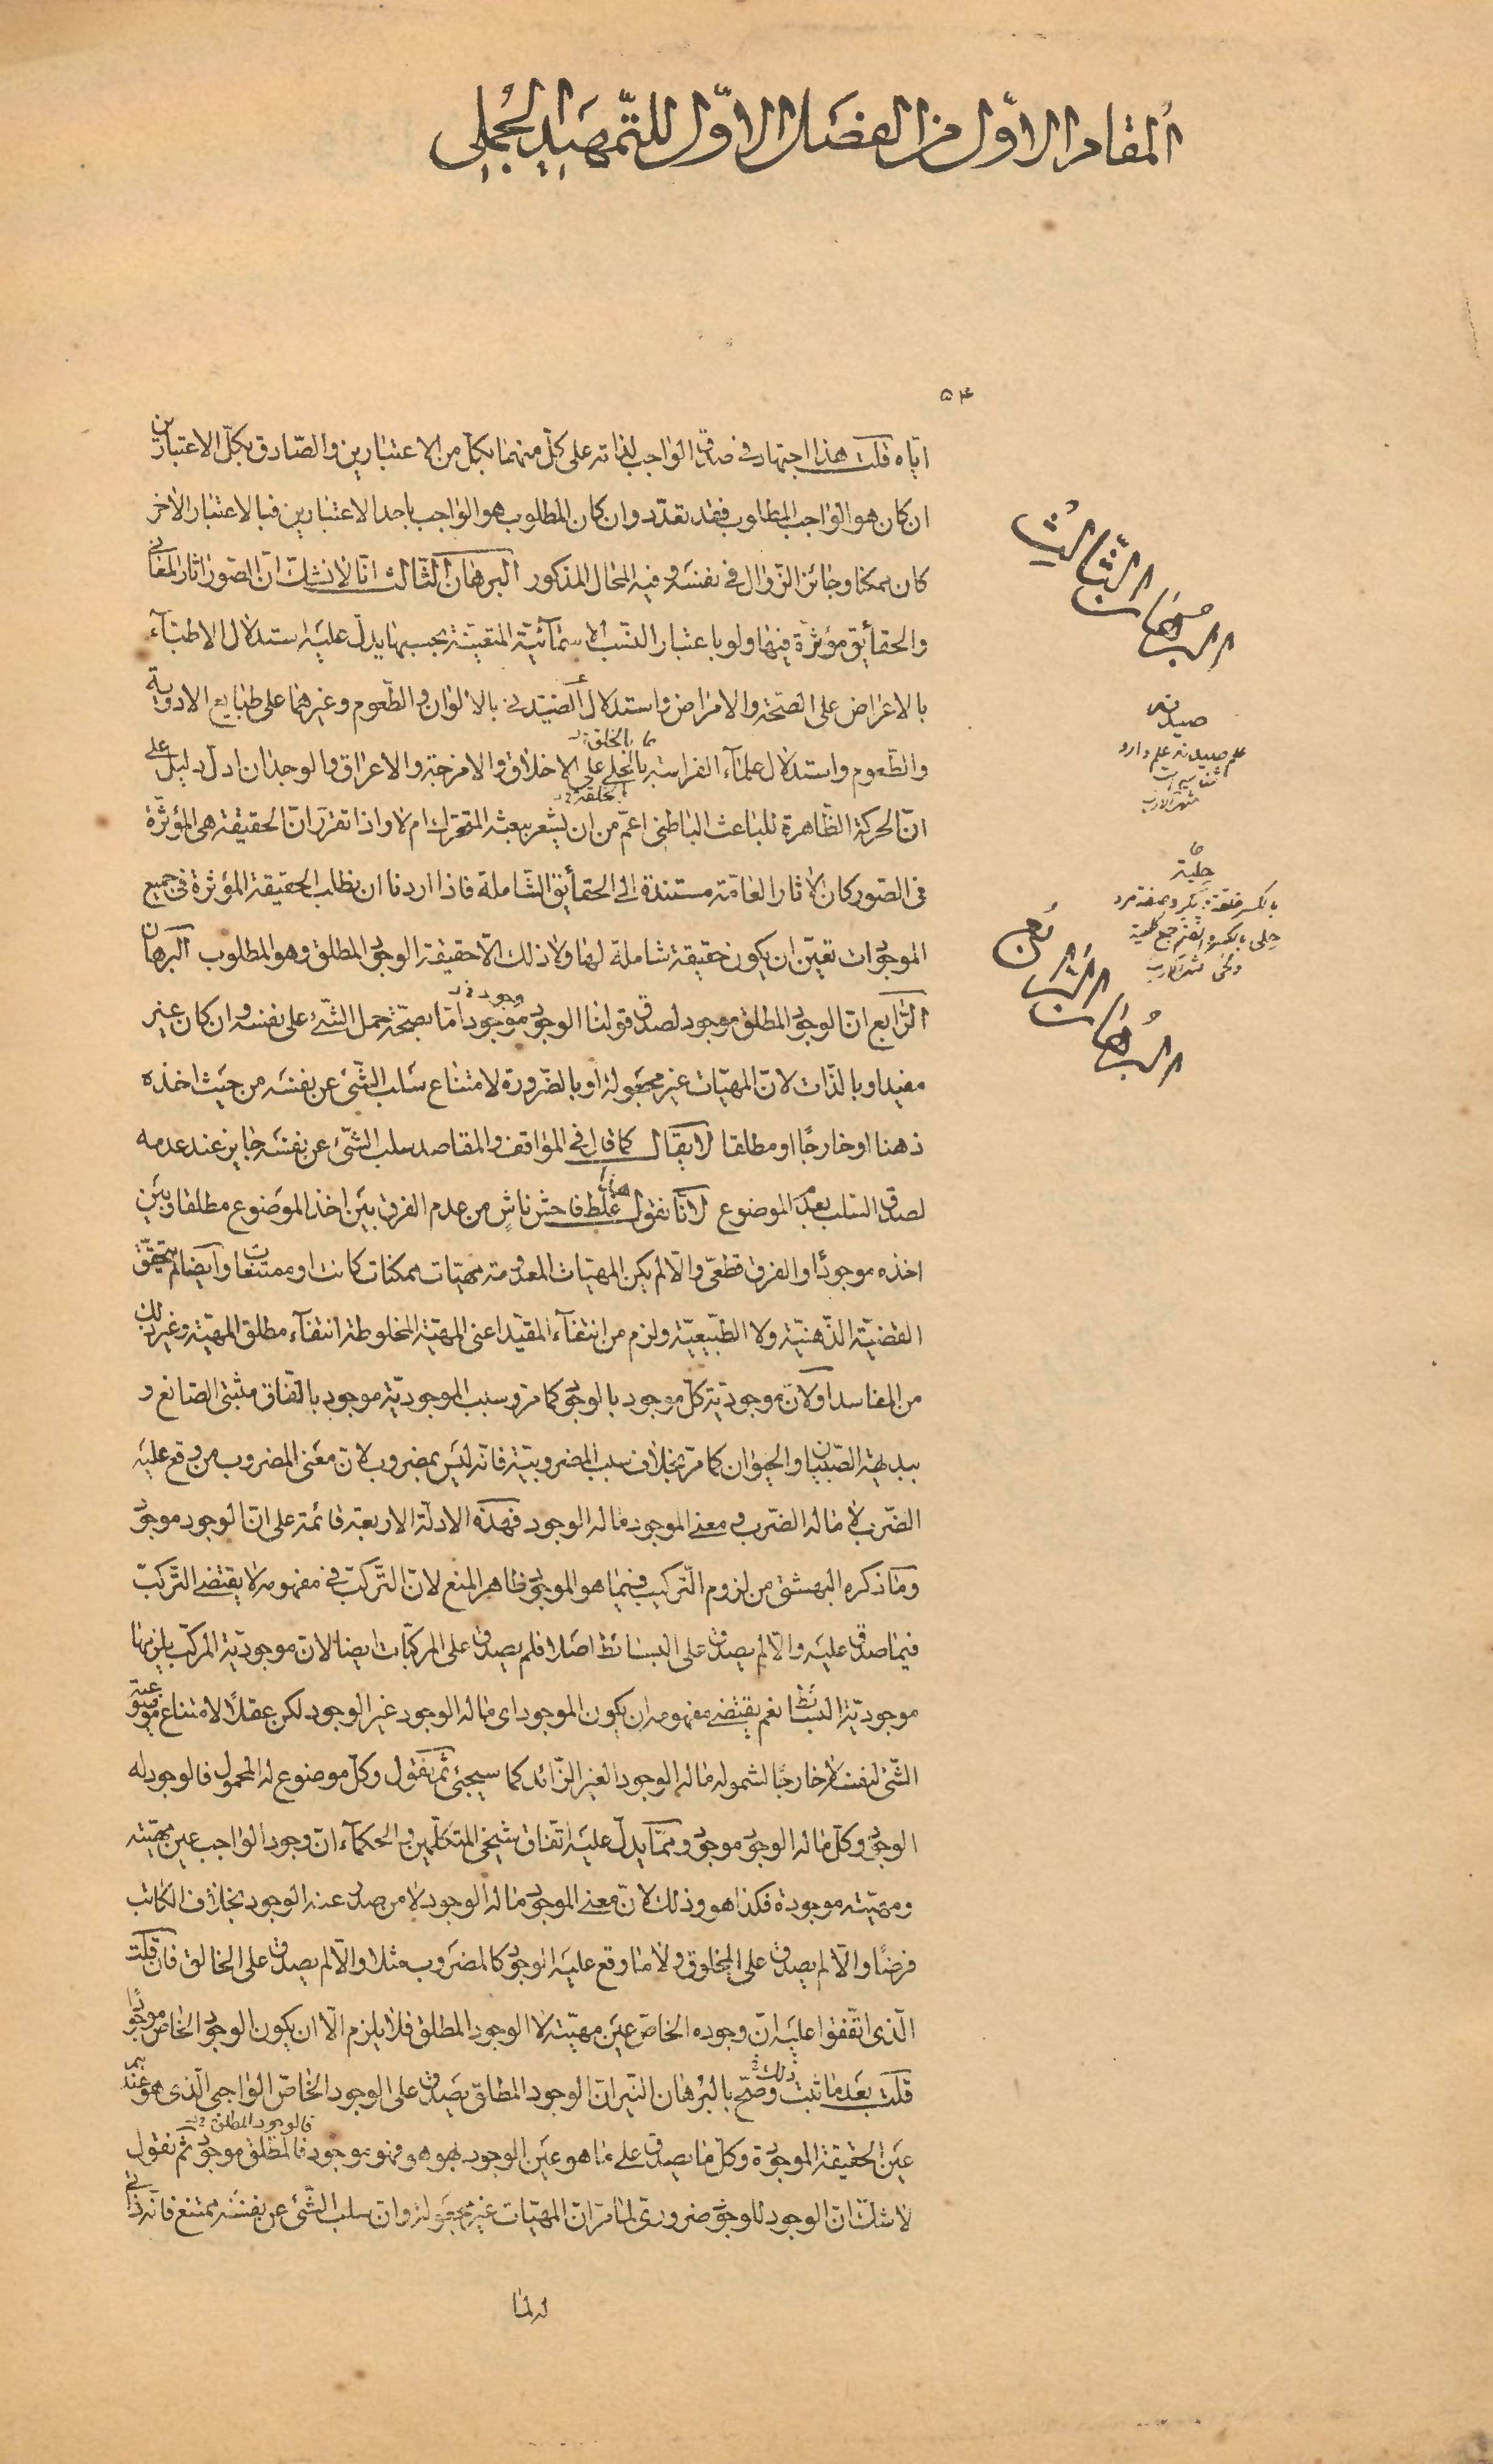 المقام الاوّل من الفصل الاوّل للتّمهيد الجملى
۵۴
ايّاه قلت هذا اجتهاد فى صدق الواجب لذاته على كلّ منهما بكلّ من الاعتبارين والصّادق بكلّ الاعتبارين
ان كان هو الواجب المطلوب فقد تعدّد وان كان المطلوب هو الواجب باحد الاعتبارين فبالاعتبار الاخر
كان ممكنا وجائز الزّوال فى نفسه وفيه المحال المذكور البرهان الثّالث انّا لا نشكّ انّ الصّور اثار المعانى
والحقائق مؤثرة فيها ولو باعتبار النّسب الاسمائيّة المتعيّنة بحسبها يدلّ عليه استدلال الاطبّاء
بالاعراض على الصّحّة والامراض واستدلال الصّيدنى بالالوان والطّعوم وغيرهما على طبايع الادوية
والطّعوم واستدلال علماء الفراسة بالحلى على الاخلاق والامزجة والاعراق والوجدان ادلّ دليل على
انّ الحركة الظّاهرة للباعث الباطنى اعمّ من ان يشعر ببعثه المتحرّك ام لا واذا تقرّر انّ الحقيقة هى المؤثّرة
فى الصّور كان الاثار العامّة مستندة الى الحقائق الشّاملة فاذا اردنا ان نطلب الحقيقة المؤثرة فى جميع
الموجودات تعيّن ان يكون حقيقة شاملة لها ولا ذلك الّا حقيقة الوجود المطلق وهو المطلوب البرهان
الرّابع انّ الوجود المطلق موجود لصدق قولنا الوجود موجود امّا بصحّة حمل الشّىء على نفسه وان كان غير
مفيد او بالذّات لانّ المهيّات غير مجعولة او بالضّرورة لامتناع سلب الشّىء عن نفسه من حيث اخذه
ذهنا او خارجًا او مطلقا لا يقال كما قال فى المواقف والمقاصد سلب الشّىء عن نفسه جايز عند عدمه
لصدق السّلب بعدم الموضوع لانّا نقول هذا غلط فاحش ناشٍ من عدم الفرق بين اخذ الموضوع مطلقا وبين
اخذه موجودًا والفرق قطعىّ والّا لم يكن المهيّات المعدومة مهيّات ممكنات كانت او ممتنعات وايضا لم يتحقّق
القضيّة الذّهنيّة ولا الطّبيعيّة ولزم من انتفاء المقيّد اعنى المهيّة المخلوطة انتفاء مطلق المهيّة وغير ذلك
من المفاسد او لانّ موجوديّة كلّ موجود بالوجود كما مرّ وسبب الموجوديّة موجود باتّفاق مثبتى الصّانع و
ببديهة الصّبيان والحيوان كما مرّ بخلاف سبب المضروبيّة فانّه ليس بمضروب لانّ معنى المضروب من وقع عليه
الضّرب لا ما له الضّرب ومعنى الموجود ما له الوجود فهذه الادلّة الاربعة قائمة على انّ الوجود موجود
وما ذكره البهشتى من لزوم التّركيب فيما هو الموجود ظاهر المنع لانّ التّركّب فى مفهومه لا يقتضى التّركّب
فيما صدق عليه والّا لم يصدق على البسائط اصلا فلم يصدق على المركّبات ايضا لانّ موجوديّة المركّب يلزمها
موجوديّة البسائط نعم يقتضى مفهومه ان يكون الموجود اى ما له الوجود غير الوجود لكن عقلًا لامتناع موضوعية
الشّىء لنفسه لا خارجًا لشموله ما له الوجود الغير الزّائد كما سيجئ ثم نقول وكلّ موضوع له المحمول فالوجود له
الوجود وكلّ ما له الوجود موجود وممّا يدلّ عليه اتّفاق شيخى المتكلّمين والحكماء انّ وجود الواجب عين مهيّته
ومهيّته موجودة فكذا هو وذلك لانّ معنى الموجود ما له الوجود لا من صدر عنه الوجود بخلاف الكاتب
فرضًا والّا لم يصدق على المخلوق ولا ما وقع عليه الوجود كالمضروب مثلا والّا لم يصدق على الخالق فان قلت
الّذى اتّفقوا عليه انّ وجوده الخاصّ عين مهيّته لا الوجود المطلق فلا يلزم الّا ان يكون الوجود الخاصّ موجودًا
قلت بعد ما ثبت ذلك وصحّ بالبرهان النّيّر انّ الوجود المطلق يصدق على الوجود الخاصّ الواجبى الّذى هو عندهم
عين الحقيقة الموجودة وكلّ ما يصدق على ما هو عين الوجود بهو هو فهو موجود فالمطلق موجود ثمّ نقول
فالوجود المطلق
لا شكّ انّ الوجود للوجود ضرورىّ لما مرّ انّ المهيّات غير مجعولة وانّ سلب الشّىء عن نفسه ممتنع فانّه ذاتى
له لما
البرهان الثّالث
صيدنه
علم صيدنه علم دارو
شناسى است
منتهى الارب
حلية
البرهان الرّابع